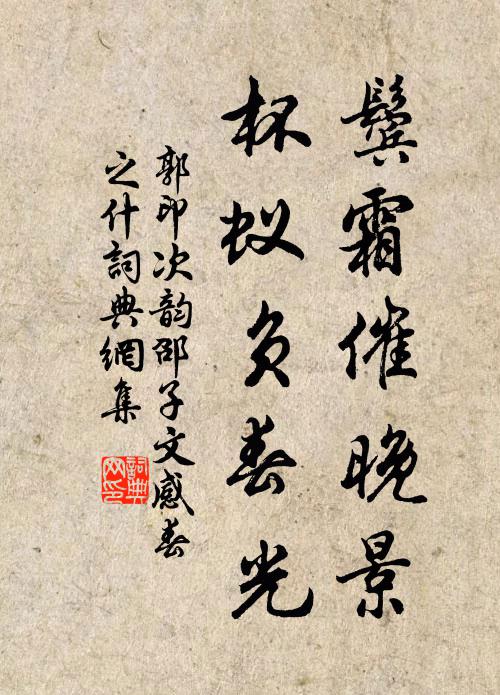 鬓霜催晚景
杯蚁负春光
郭印次韵邵子文感春
之什詞典網集
詞典
网印